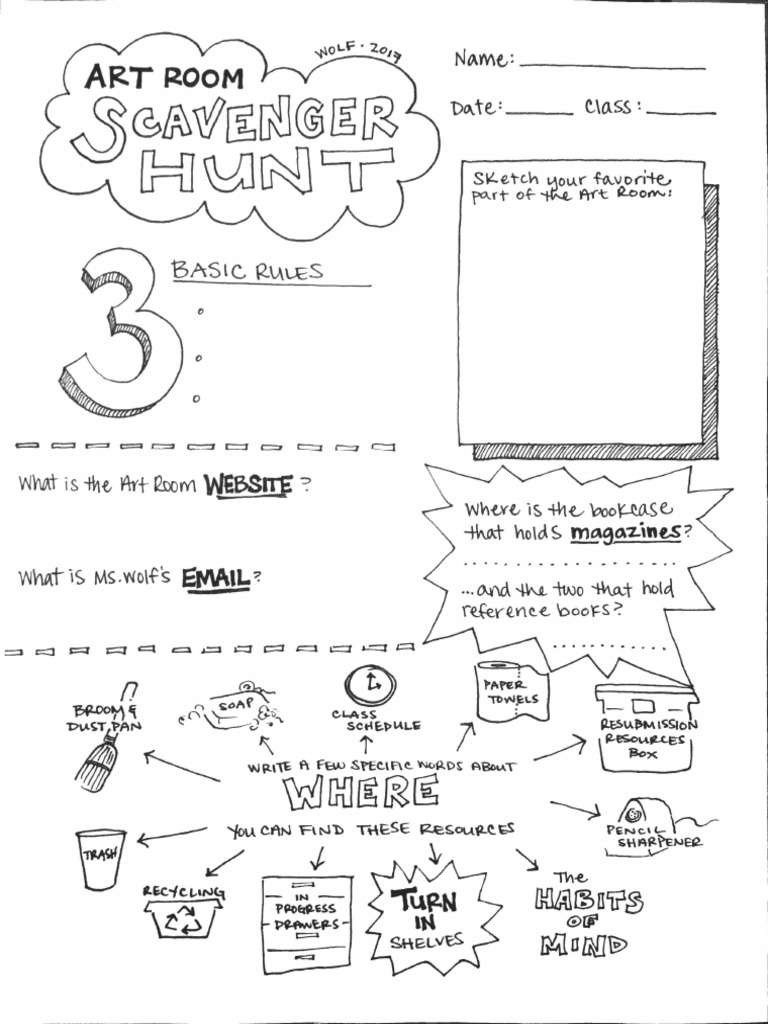 WOLF · 2017
ART ROOM
SCAVENGER
HUNT
Name:
Date: Class:
Sketch your favorite
part of the Art Room:
3 BASIC RULES
What is the Art Room WEBSITE?
What is Ms. Wolf's EMAIL?
Where is the bookcase
that holds magazines?
...and the two that hold
reference books?
BROOM &
DUST PAN
SOAP
CLASS
SCHEDULE
PAPER
TOWELS
RESUBMISSION
RESOURCES
BOX
WRITE A FEW SPECIFIC WORDS ABOUT
WHERE
YOU CAN FIND THESE RESOURCES
PENCIL
SHARPENER
TRASH
RECYCLING
IN
PROGRESS
DRAWERS
TURN
IN
SHELVES
The
HABITS
OF
MIND